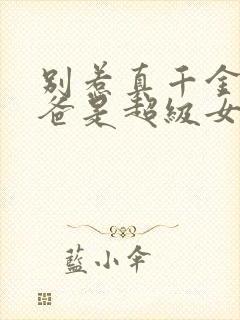 别惹真千金
爸是超级女
藍小伞